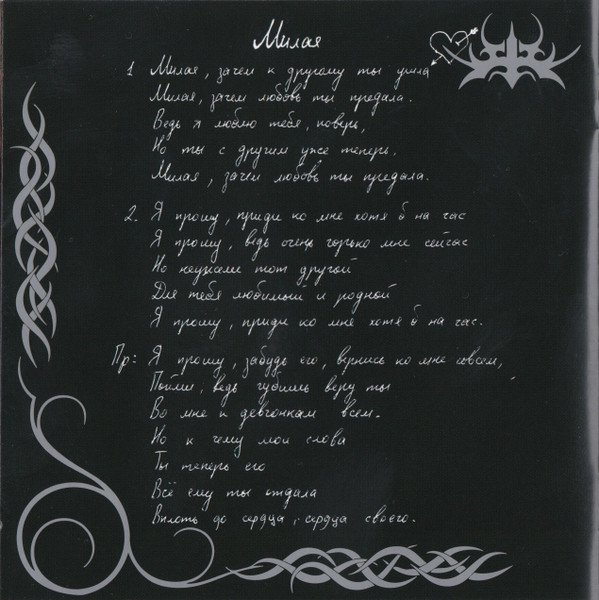 Милая
1 Милая, зачем к другому ты ушла
Милая, зачем любовь ты предала.
Ведь я люблю тебя, поверь,
Но ты с другим уже теперь.
Милая, зачем любовь ты предала.
2. Я прошу, приди ко мне хотя б на час
Я прошу, ведь очень горько мне сейчас
Но неужели тот другой
Для тебя любимый и родной
Я прошу, приди ко мне хотя б на час.
Пр: Я прошу, забудь его, вернись ко мне совсем,
Пойми, ведь губишь веру ты
Во мне к девчонкам всем.
Но к чему мои слова
Ты теперь его
Всё ему ты отдала
Вплоть до сердца, сердца своего.